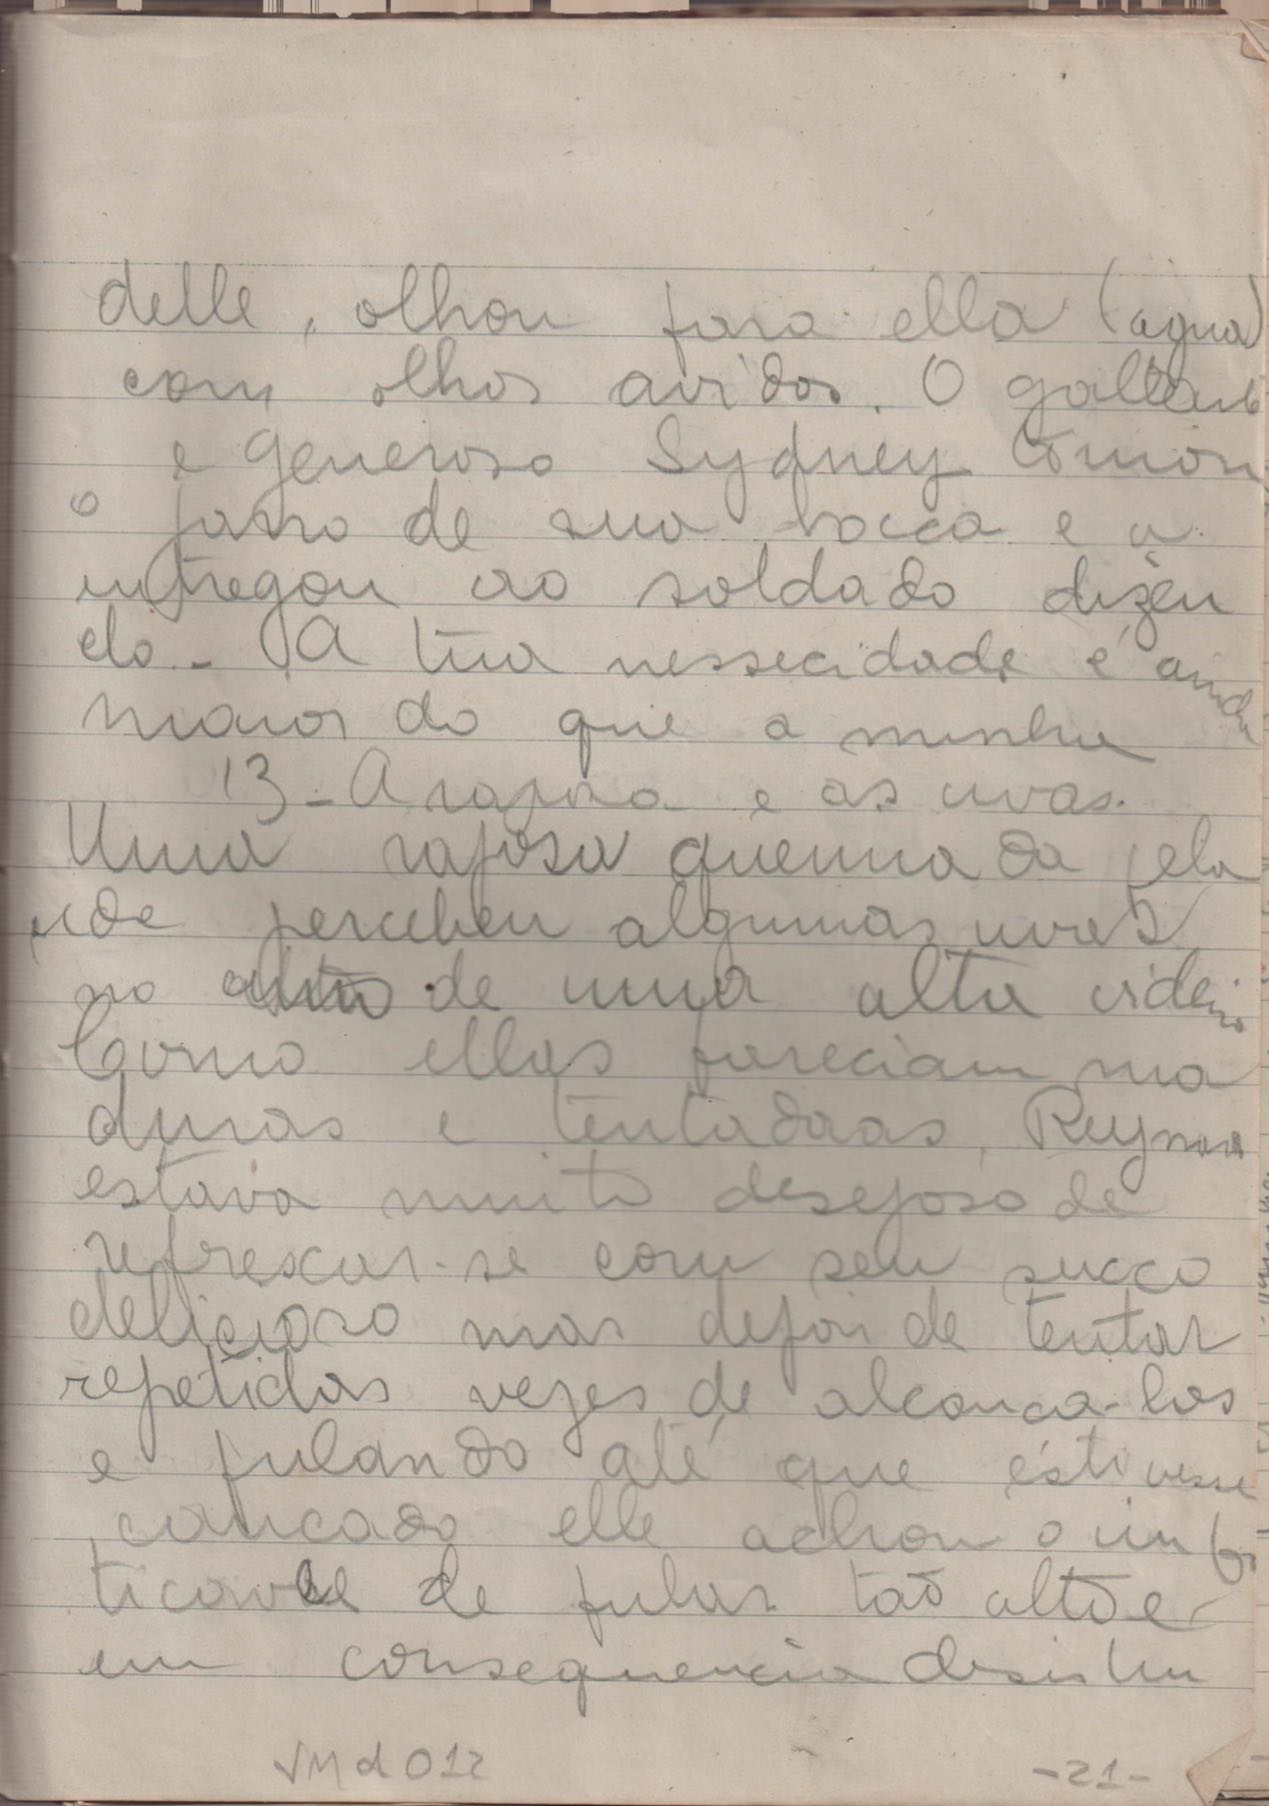 delle, olhou para ella (agua)
com olhos avidos. O galante
e generoso Sydney tomou
o jarro de sua bocca e a
entregou ao soldado dizen
do - A tua nessecidade é ainda
maior do que a minha
13 - A raposa e as uvas.
Uma raposa queimada pela
sede percebeu algumas uvas
no alto de uma alta videira
Como ellas pareciam ma
duras e tentadoras, Reynard
estava muito desejoso de
refrescar-se com seu succo
delicioso mas depoi de tentar
repetidas vezes de alcança-las
e pulando até que estivesse
cancado elle achou o
de pular tão alto e
em consequencia desistiu
VMd012
-21-